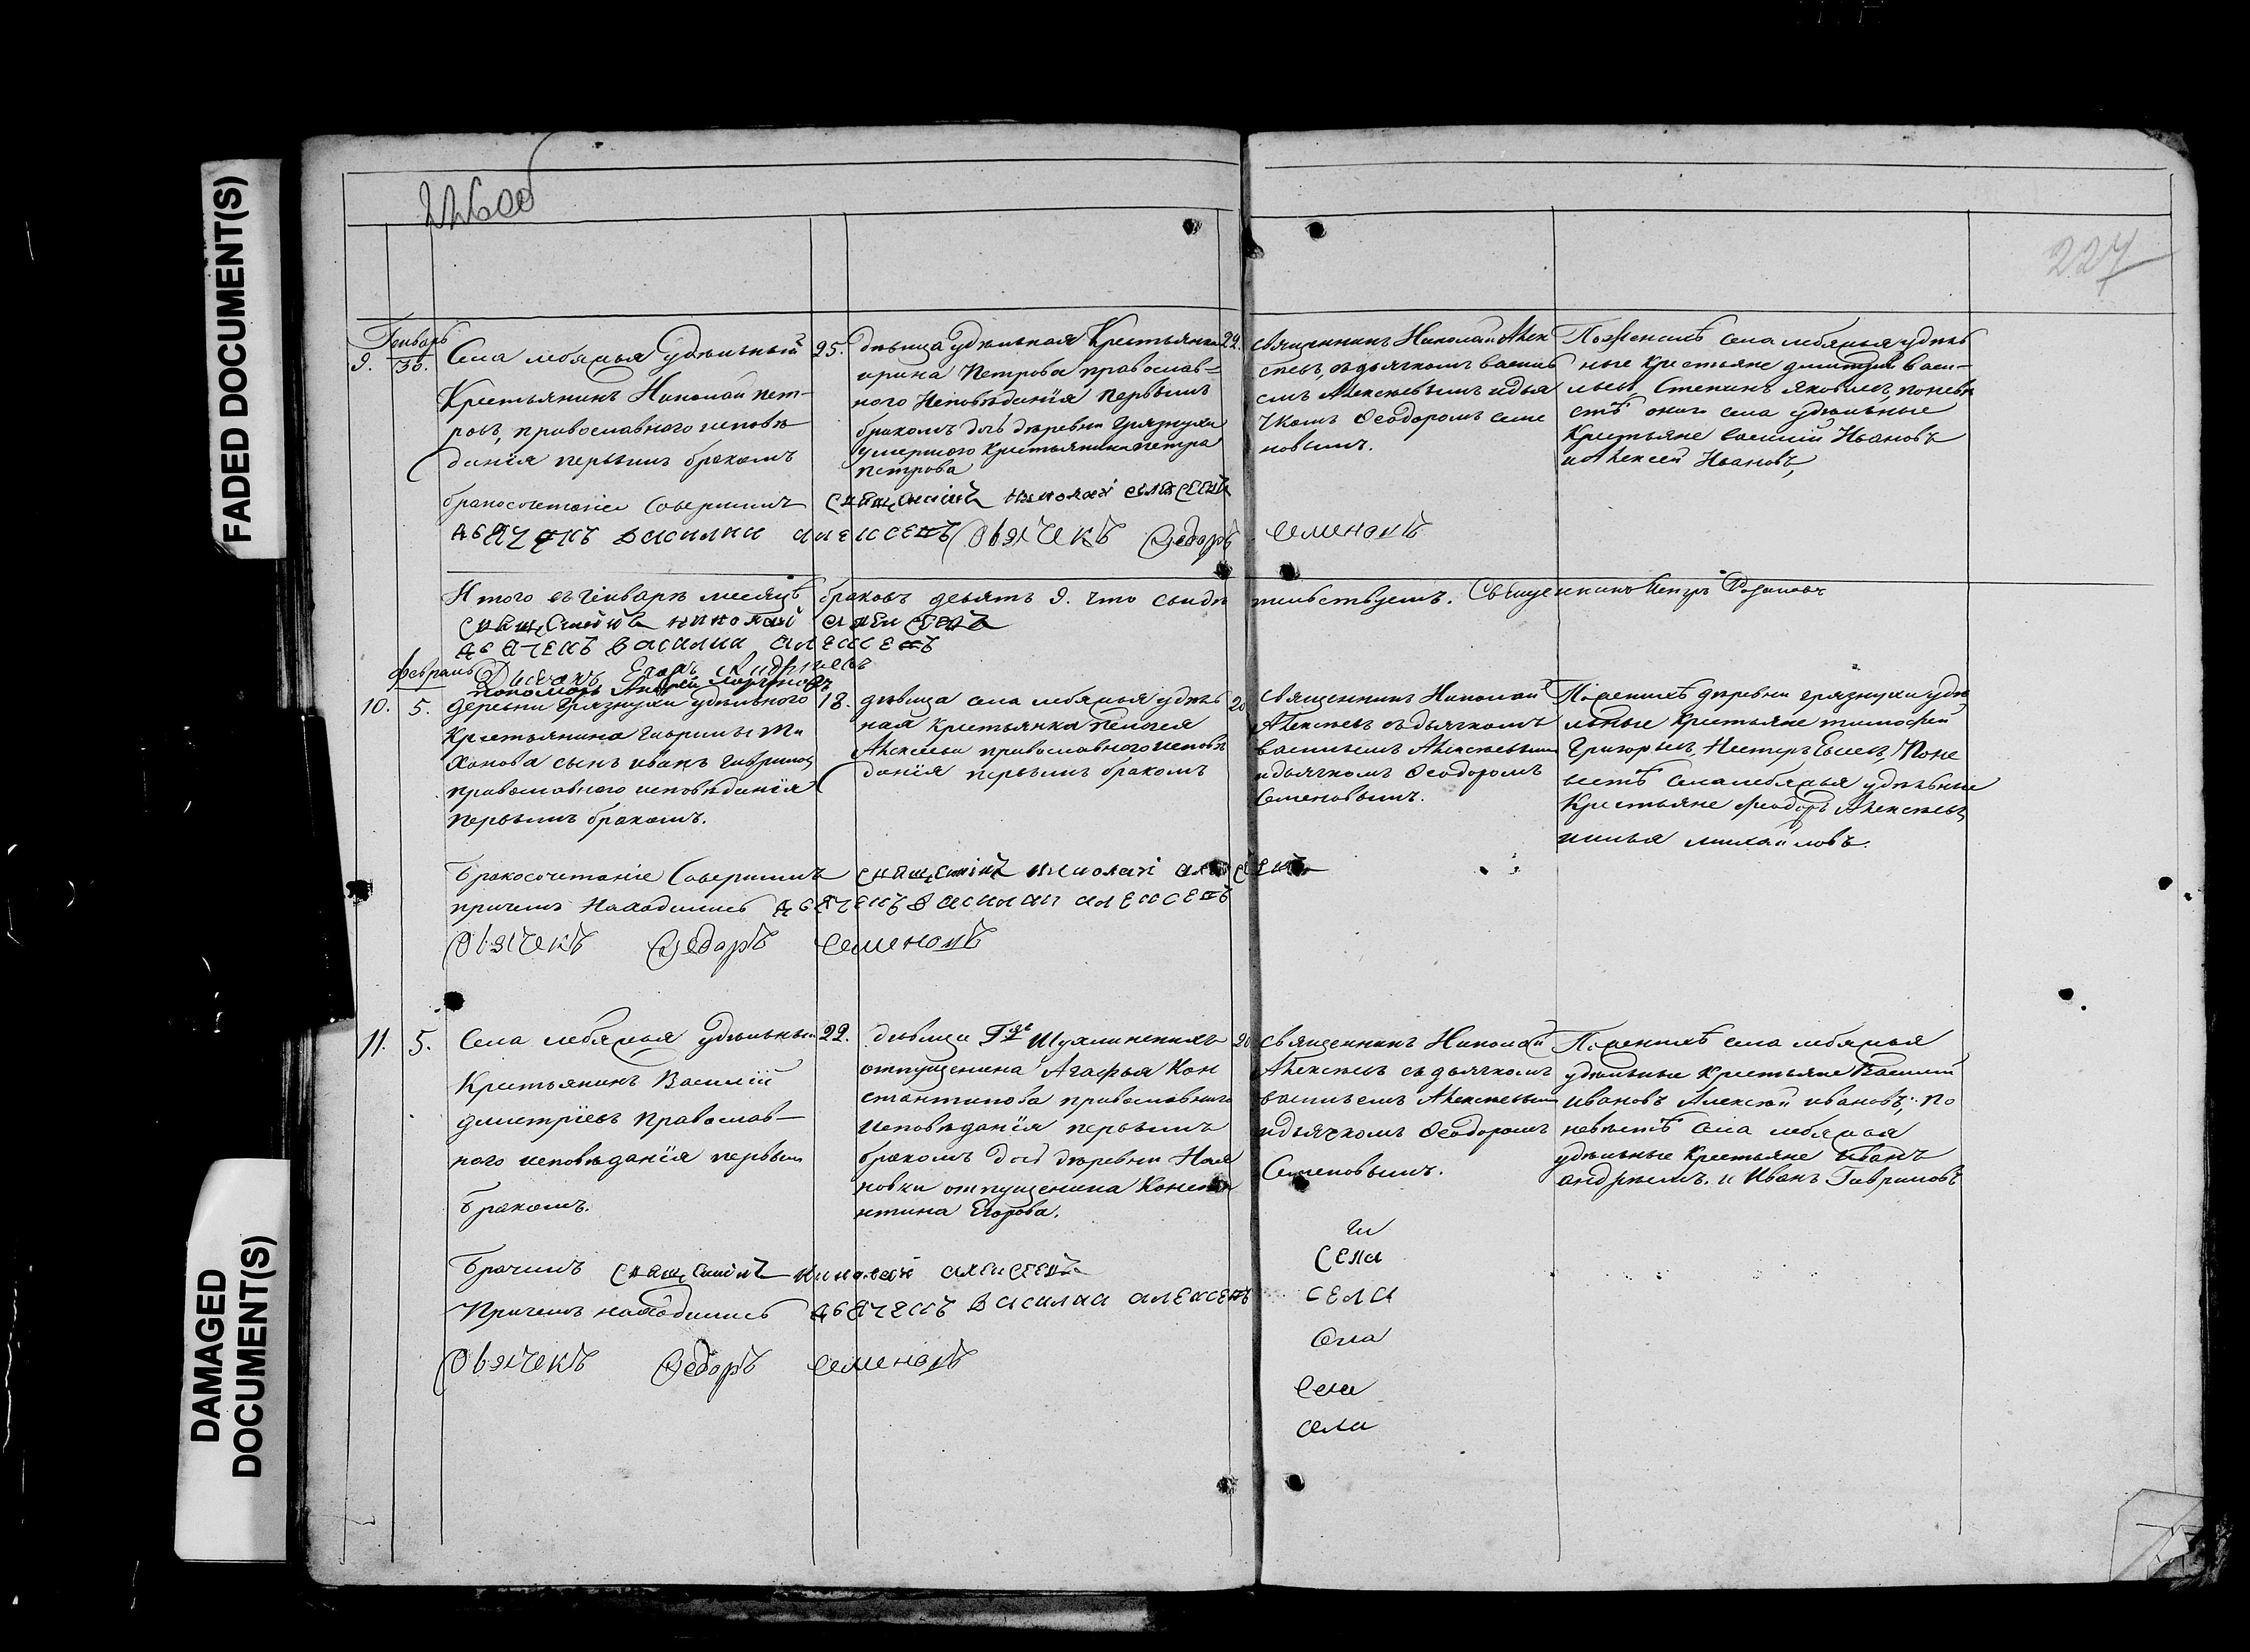 FADED DOCUMENT(S)
DAMAGED DOCUMENT(S)
226об
227
Генварь
9.
30.
Села лебяжья удѣльный
Крестьянинъ Николай Пет-
ровъ, православнаго исповѣ
данія первымъ бракомъ
25.
дѣвица удѣльная Крестьянка
ирина Петрова православ-
ного Исповѣданія первымъ
бракомъ дочь деревни Грязнухи
умершого крестьянина петра
петрова
22.
священникъ Николай Алек
сѣевъ, съ дьячкомъ василь
емъ Алексѣевымъ и дья
чкомъ Ѳеодоромъ семе
новымъ.
По женихѣ села лебяжья удѣль
ные крестьяне димитрій васи-
льевъ, Степанъ Яковлевъ, по невѣ
стѣ оного села удѣльные
Крестьяне василій Ивановъ
и Алексей Ивановъ,
бракосочетаніе Совершилъ священникъ николай алексеевъ
дьячекъ василии алексеевъ дьячекъ Федоръ семеновъ
Итого въ Генварѣ месяцѣ браковъ девять 9. что свидѣтельствуемъ. Священникъ Петръ
священникъ николай алексеевъ
дьячекъ василии алексеевъ
Дьяконъ Егоръ
пономарь Андрей
февраль
10.
5.
деревни Грязнухи удѣльного
Крестьянина Гаврилы Ти
ханова сынъ иванъ Гавриловъ
православного исповѣданія
первымъ бракомъ.
18.
дѣвица села лебяжья удѣль
ная крестьянка пелагея
Алексеева православного исповѣ
данія первымъ бракомъ
20
священникъ Николай
Алексѣевъ съ дьячкомъ
васильемъ Алексѣевымъ
и дьячкомъ Ѳеодоромъ
Семеновымъ.
По женихѣ деревни грязнухи удѣ
льные крестьяне тимофей
Григорьевъ, Нестеръ, По не
вестѣ села лебяжья удѣльные
Крестьяне Феодоръ Алексѣевъ
и илья михайловъ.
Бракосочетаніе Совершилъ священникъ николай алексеевъ
причемъ находились дьячекъ василии алексеевъ
дьячекъ Федоръ семеновъ
11.
5.
Села лебяжья удѣльный
Крестьянинъ Василій
дмитріевъ Православ-
ного исповѣданія первымъ
бракомъ.
22.
дѣвица Гдѣ
отпущенина Агафья Кон
стантинова православного
Исповѣданія первымъ
бракомъ дочь деревни
новки отпущенина Конста
нтина Егорова.
20
священникъ Николай
Алексѣевъ съ дьячкомъ
васильемъ Алексѣевымъ
и дьячкомъ Ѳеодоромъ
Семеновымъ.
По женихѣ села лебяжья
удѣльные крестьяне Василій
ивановъ Алексѣй ивановъ, по
невѣстѣ села лебяжья
удѣльные крестьяне Иванъ
андрѣевъ. и Иванъ Гавриловъ
Брачилъ священникъ николай алексеевъ
Причемъ находились дьячекъ василии алексеевъ
дьячекъ Федоръ семеновъ
села
села
села
села
села